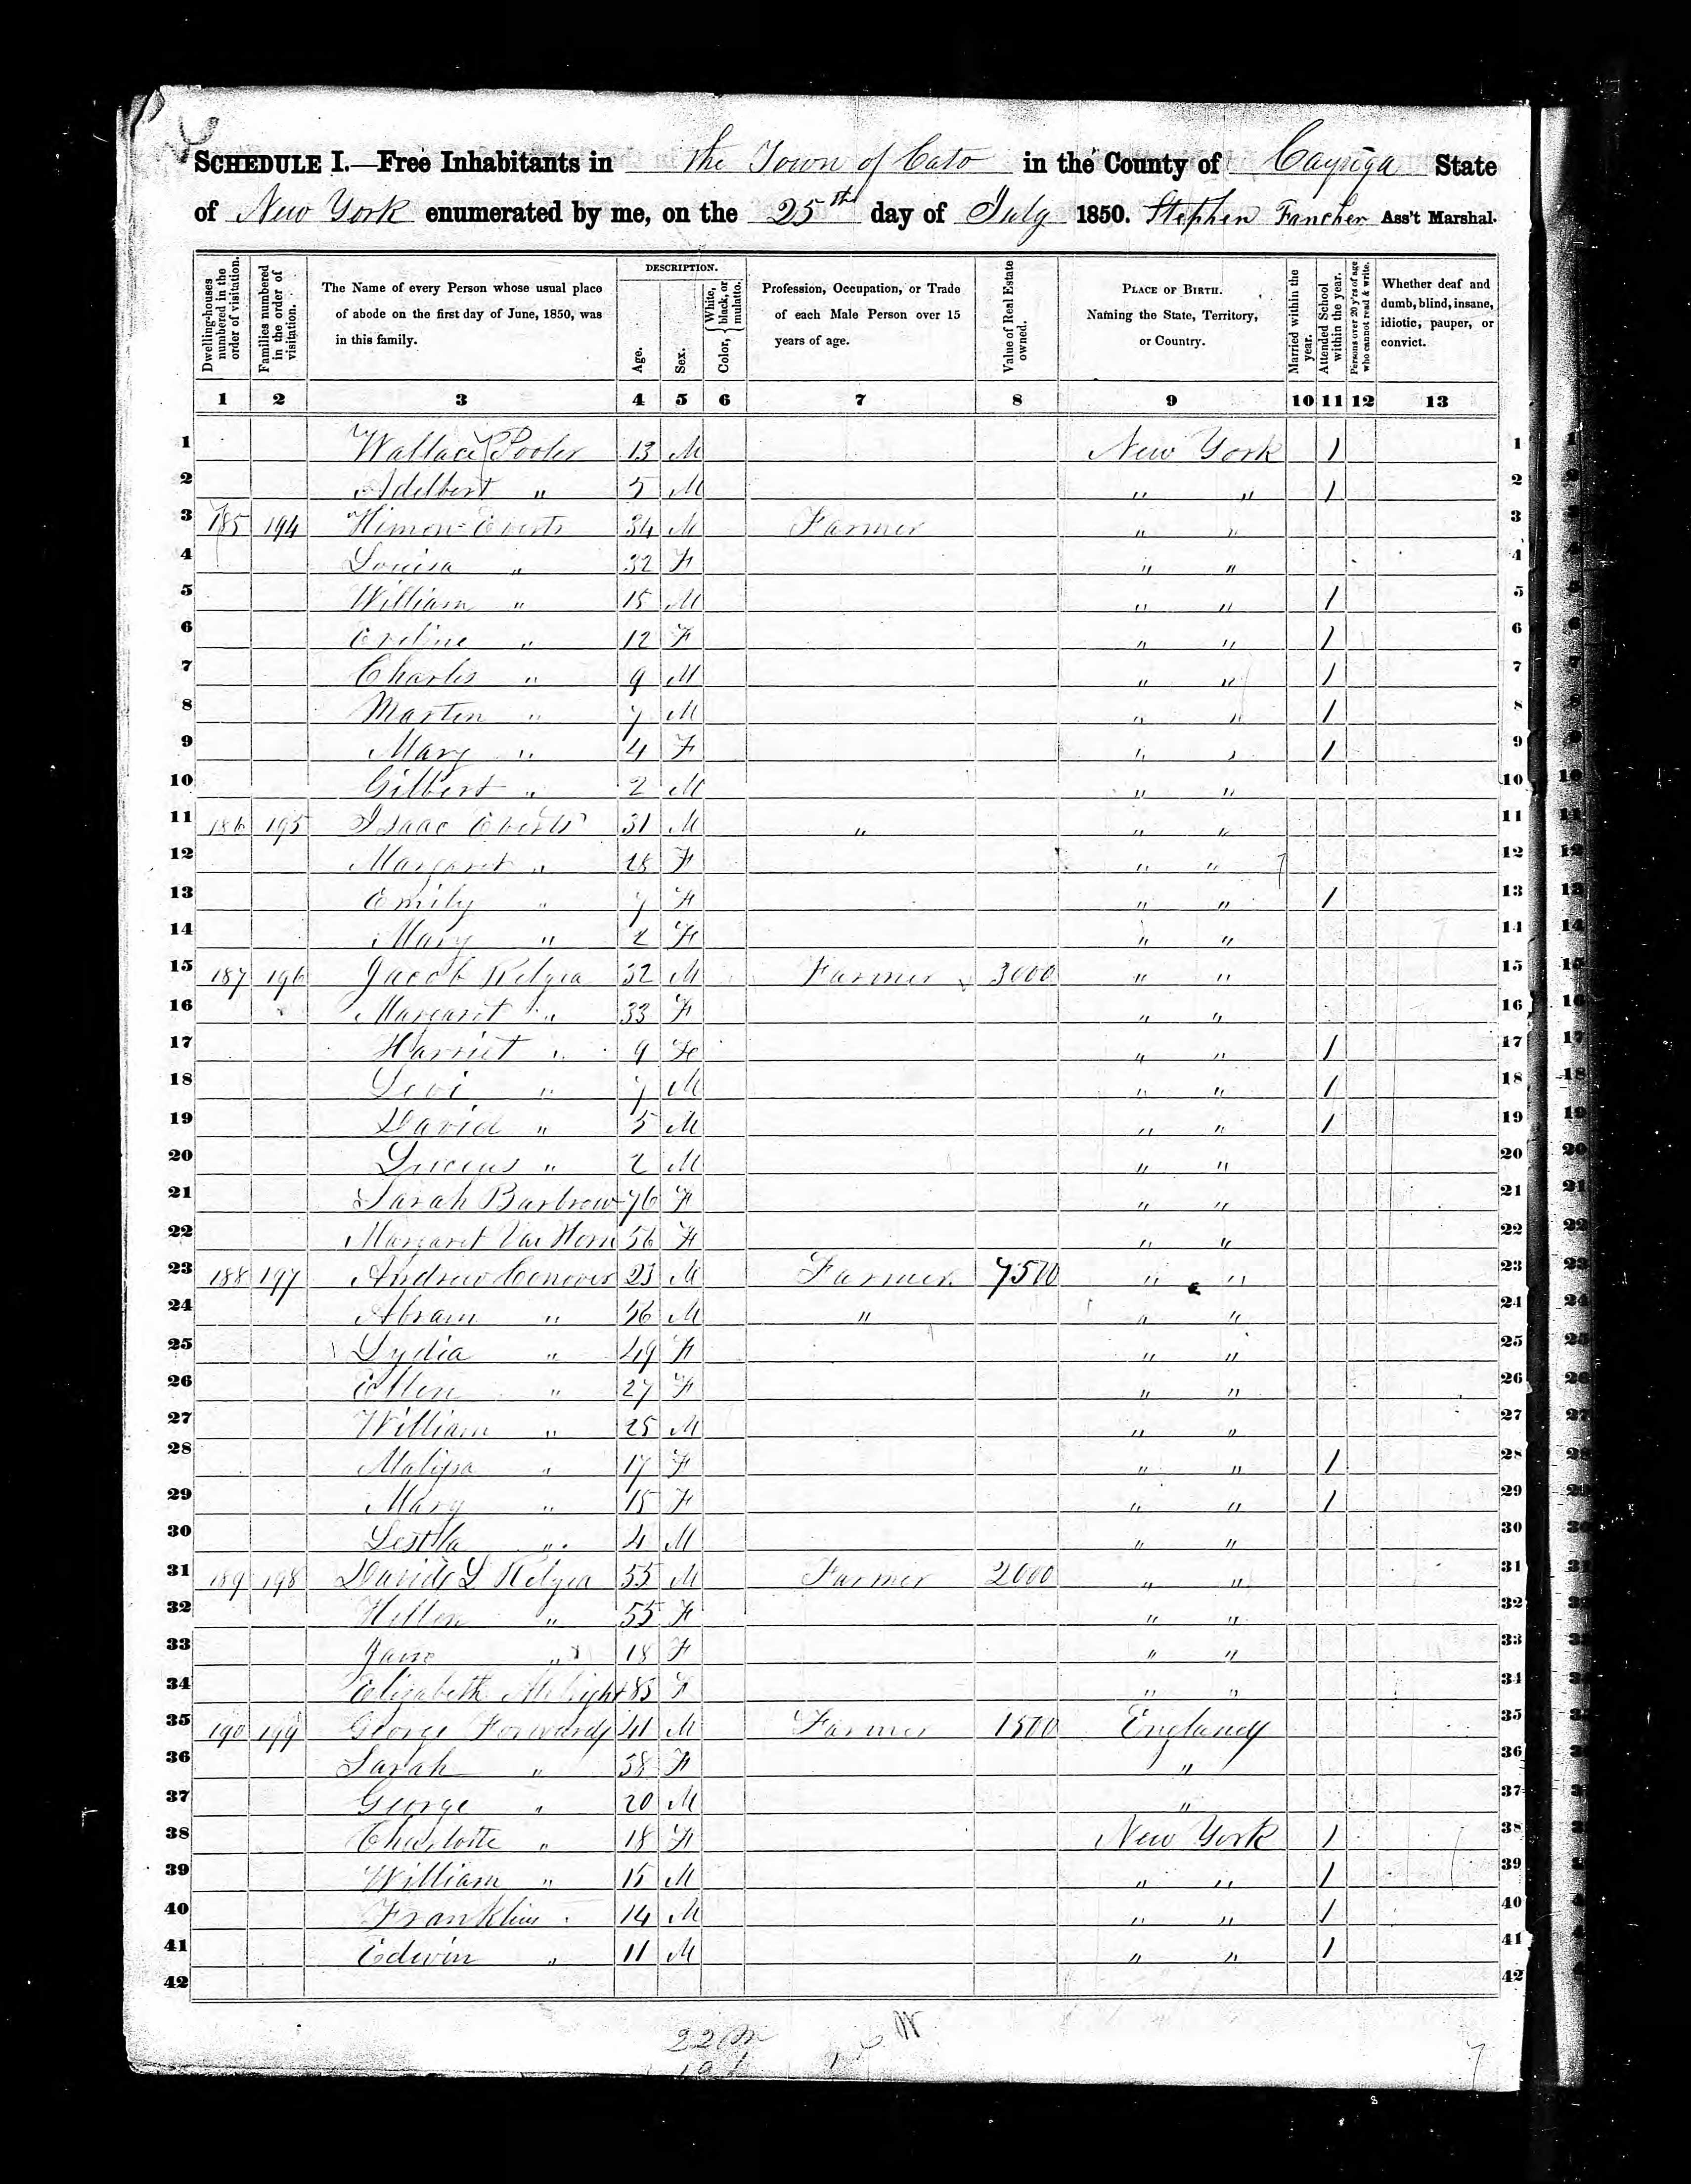 SCHEDULE I.—Free Inhabitants in the Town of Cato in the County of Cayuga State
of New York enumerated by me, on the 25th day of July 1850. Stephen Fancher Ass't Marshal.
Dwelling-houses numbered in the order of visitation.
Families numbered in the order of visitation.
The Name of every Person whose usual place of abode on the first day of June, 1850, was in this family.
DESCRIPTION.
Age.
Sex.
Color, { White, black, or mulatto.
Profession, Occupation, or Trade of each Male Person over 15 years of age.
Value of Real Estate owned.
PLACE OF BIRTH. Naming the State, Territory, or Country.
Married within the year.
Attended School within the year.
Persons over 20 y'rs of age who cannot read & write.
Whether deaf and dumb, blind, insane, idiotic, pauper, or convict.
1 2 3 4 5 6 7 8 9 10 11 12 13
1 Wallace Pooler 13 M New York 1 1
2 Adelbert " 5 M " " 1 2
3 185 194 Himon Everts 34 M Farmer " " 3
4 Louisa " 32 F " " 4
5 William " 15 M " " 1 5
6 Eveline " 12 F " " 1 6
7 Charles " 9 M " " 1 7
8 Martin " 7 M " " 1 8
9 Mary " 4 F " " 1 9
10 Gilbert " 2 M " " 10
11 186 195 Isaac Everts 31 M " " " 11
12 Margaret " 28 F " " 12
13 Emily " 7 F " " 1 13
14 Mary " 2 F " " 14
15 187 196 Jacob Relyea 32 M Farmer 3000 " " 15
16 Margaret " 33 F " " 16
17 Harriet " 9 F " " 1 17
18 Levi " 7 M " " 1 18
19 David " 5 M " " 1 19
20 Lucius " 2 M " " 20
21 Sarah 76 F " " 21
22 Margaret Van Horn 56 F " " 22
23 188 197 Andrew Conover 23 M Farmer 7500 " " 23
24 Abram " 56 M " " " 24
25 Lydia " 49 F " " 25
26 Ellen " 27 F " " 26
27 William " 25 M " " 27
28 Malissa " 17 F " " 1 28
29 Mary " 15 F " " 1 29
30 " 4 M " " 30
31 189 198 David L Relyea 55 M Farmer 2000 " " 31
32 Hellen " 55 F " " 32
33 Jane " 18 F " " 33
34 Elizabeth 85 F " " 34
35 190 199 George Forward 41 M Farmer 1500 England 35
36 Sarah " 38 F " 36
37 George " 20 M " 37
38 Charlotte " 18 F New York 1 38
39 William " 15 M " " 1 39
40 Franklin " 14 M " " 1 40
41 Edwin " 11 M " " 1 41
42 42
22 M
19 f